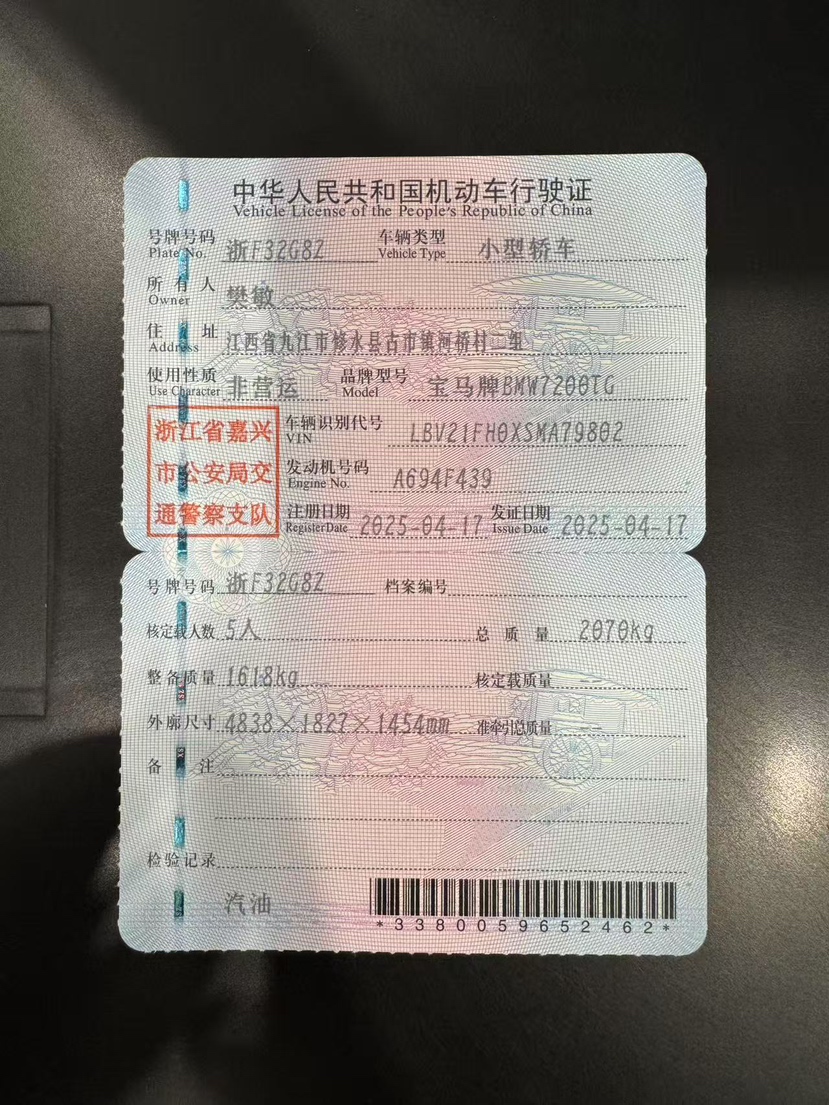 中华人民共和国机动车行驶证
Vehicle License of the People's Republic of China
号牌号码 浙F32G8Z 车辆类型 小型轿车
Plate No. Vehicle Type
所有人 樊敏
Owner
住址 江西省九江市修水县古市镇河桥村二组
Address
使用性质 非营运 品牌型号 宝马牌BMW7200TG
Use Character Model
浙江省嘉兴
市公安局交
通警察支队
车辆识别代号 LBV21FH0XSMA79802
VIN
发动机号码 A694F439
Engine No.
注册日期 2025-04-17 发证日期 2025-04-17
Register Date Issue Date
号牌号码 浙F32G8Z 档案编号
核定载人数 5人 总质量 2070kg
整备质量 1618kg 核定载质量 --
外廓尺寸 4838×1827×1454mm 准牵引总质量 --
备注
检验记录
汽油
*3380059652462*